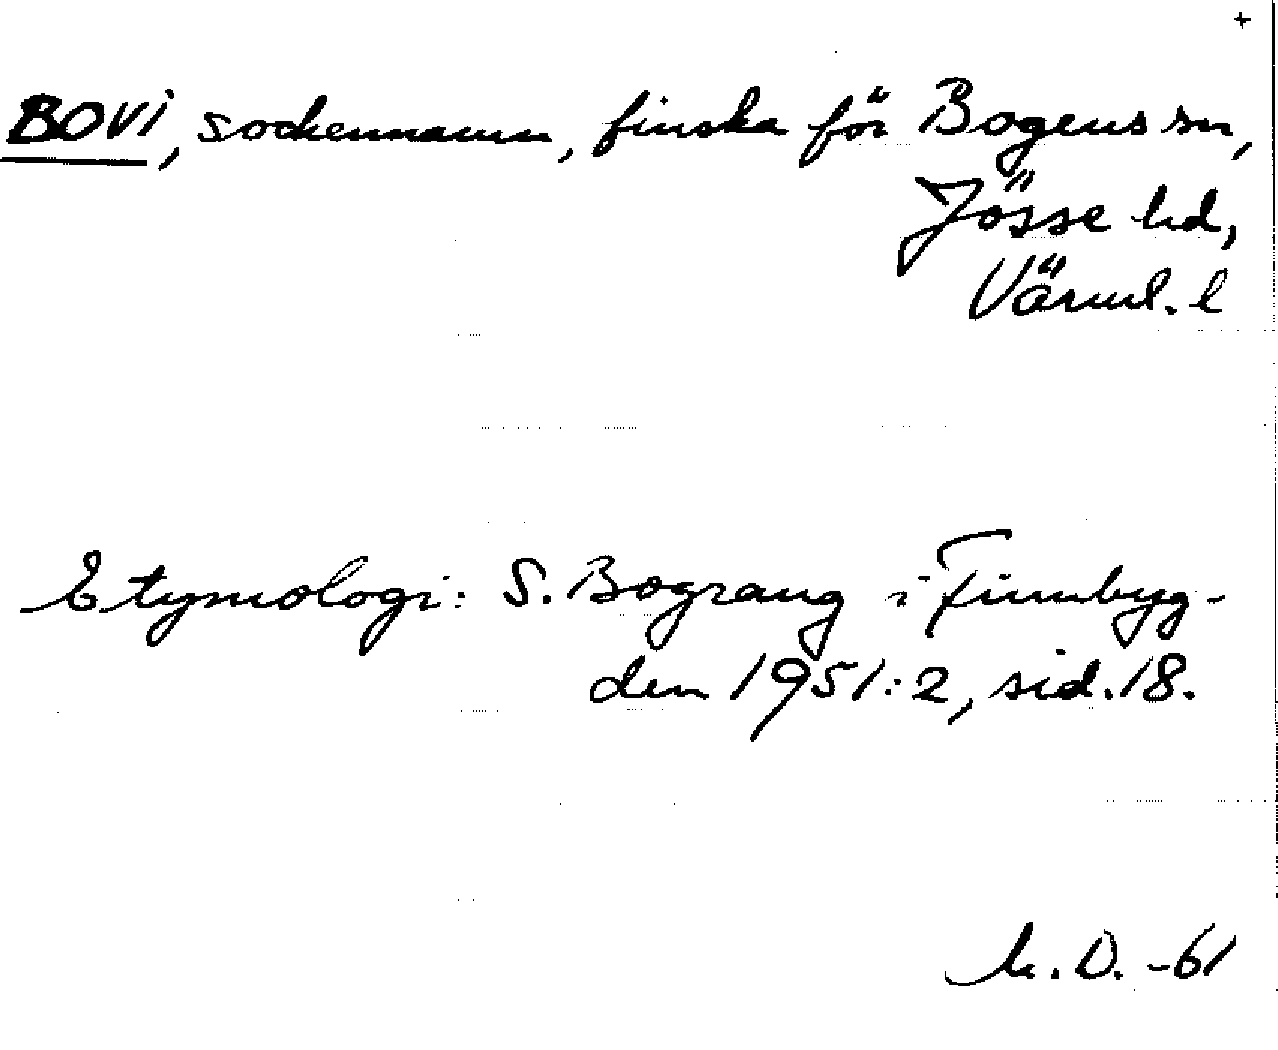 +
BOVI, sockennamn, finska för Bogens sn,
Jösse hd,
Värml. l
Etymologi: S. Bograng i Finnbyg-
den 1951:2, sid. 18.
h. D. -61